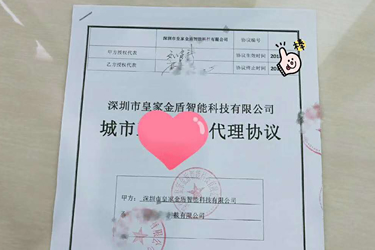 深圳市皇家金盾智能科技有限公司 协议编号
甲方授权代表 协议生效时间 201
乙方授权代表 协议终止时间 20
棒
深圳市皇家金盾智能科技有限公司
城市 代理协议
甲方：深圳市皇家金盾智能科技有限公司
乙 有限公司